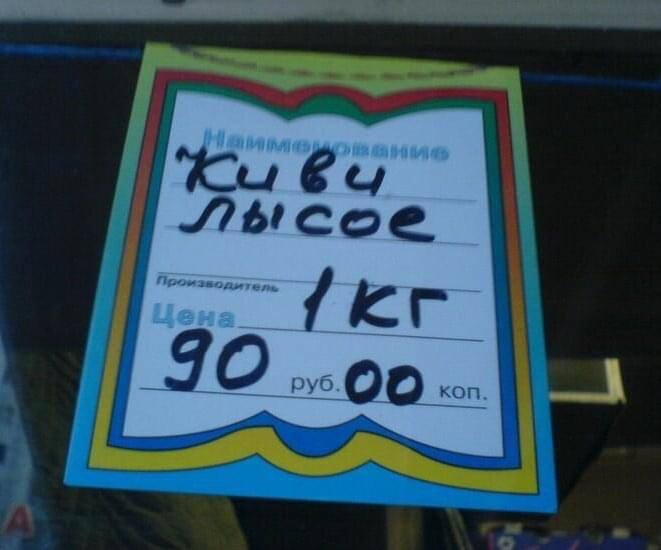 Наименование
Киви
лысое
Производитель
1 кг
Цена
90 руб. 00 коп.
А